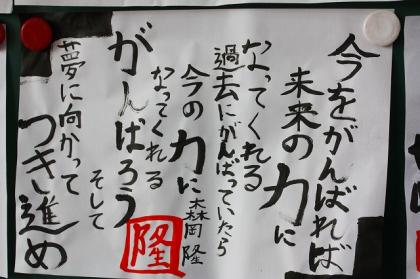 今をがんばれば
未来の力に
なってくれる
過去にがんばっていたら
今の力に
なってくれる
がんばろう
そして
夢に向かって
つき進め
森岡 隆
隆